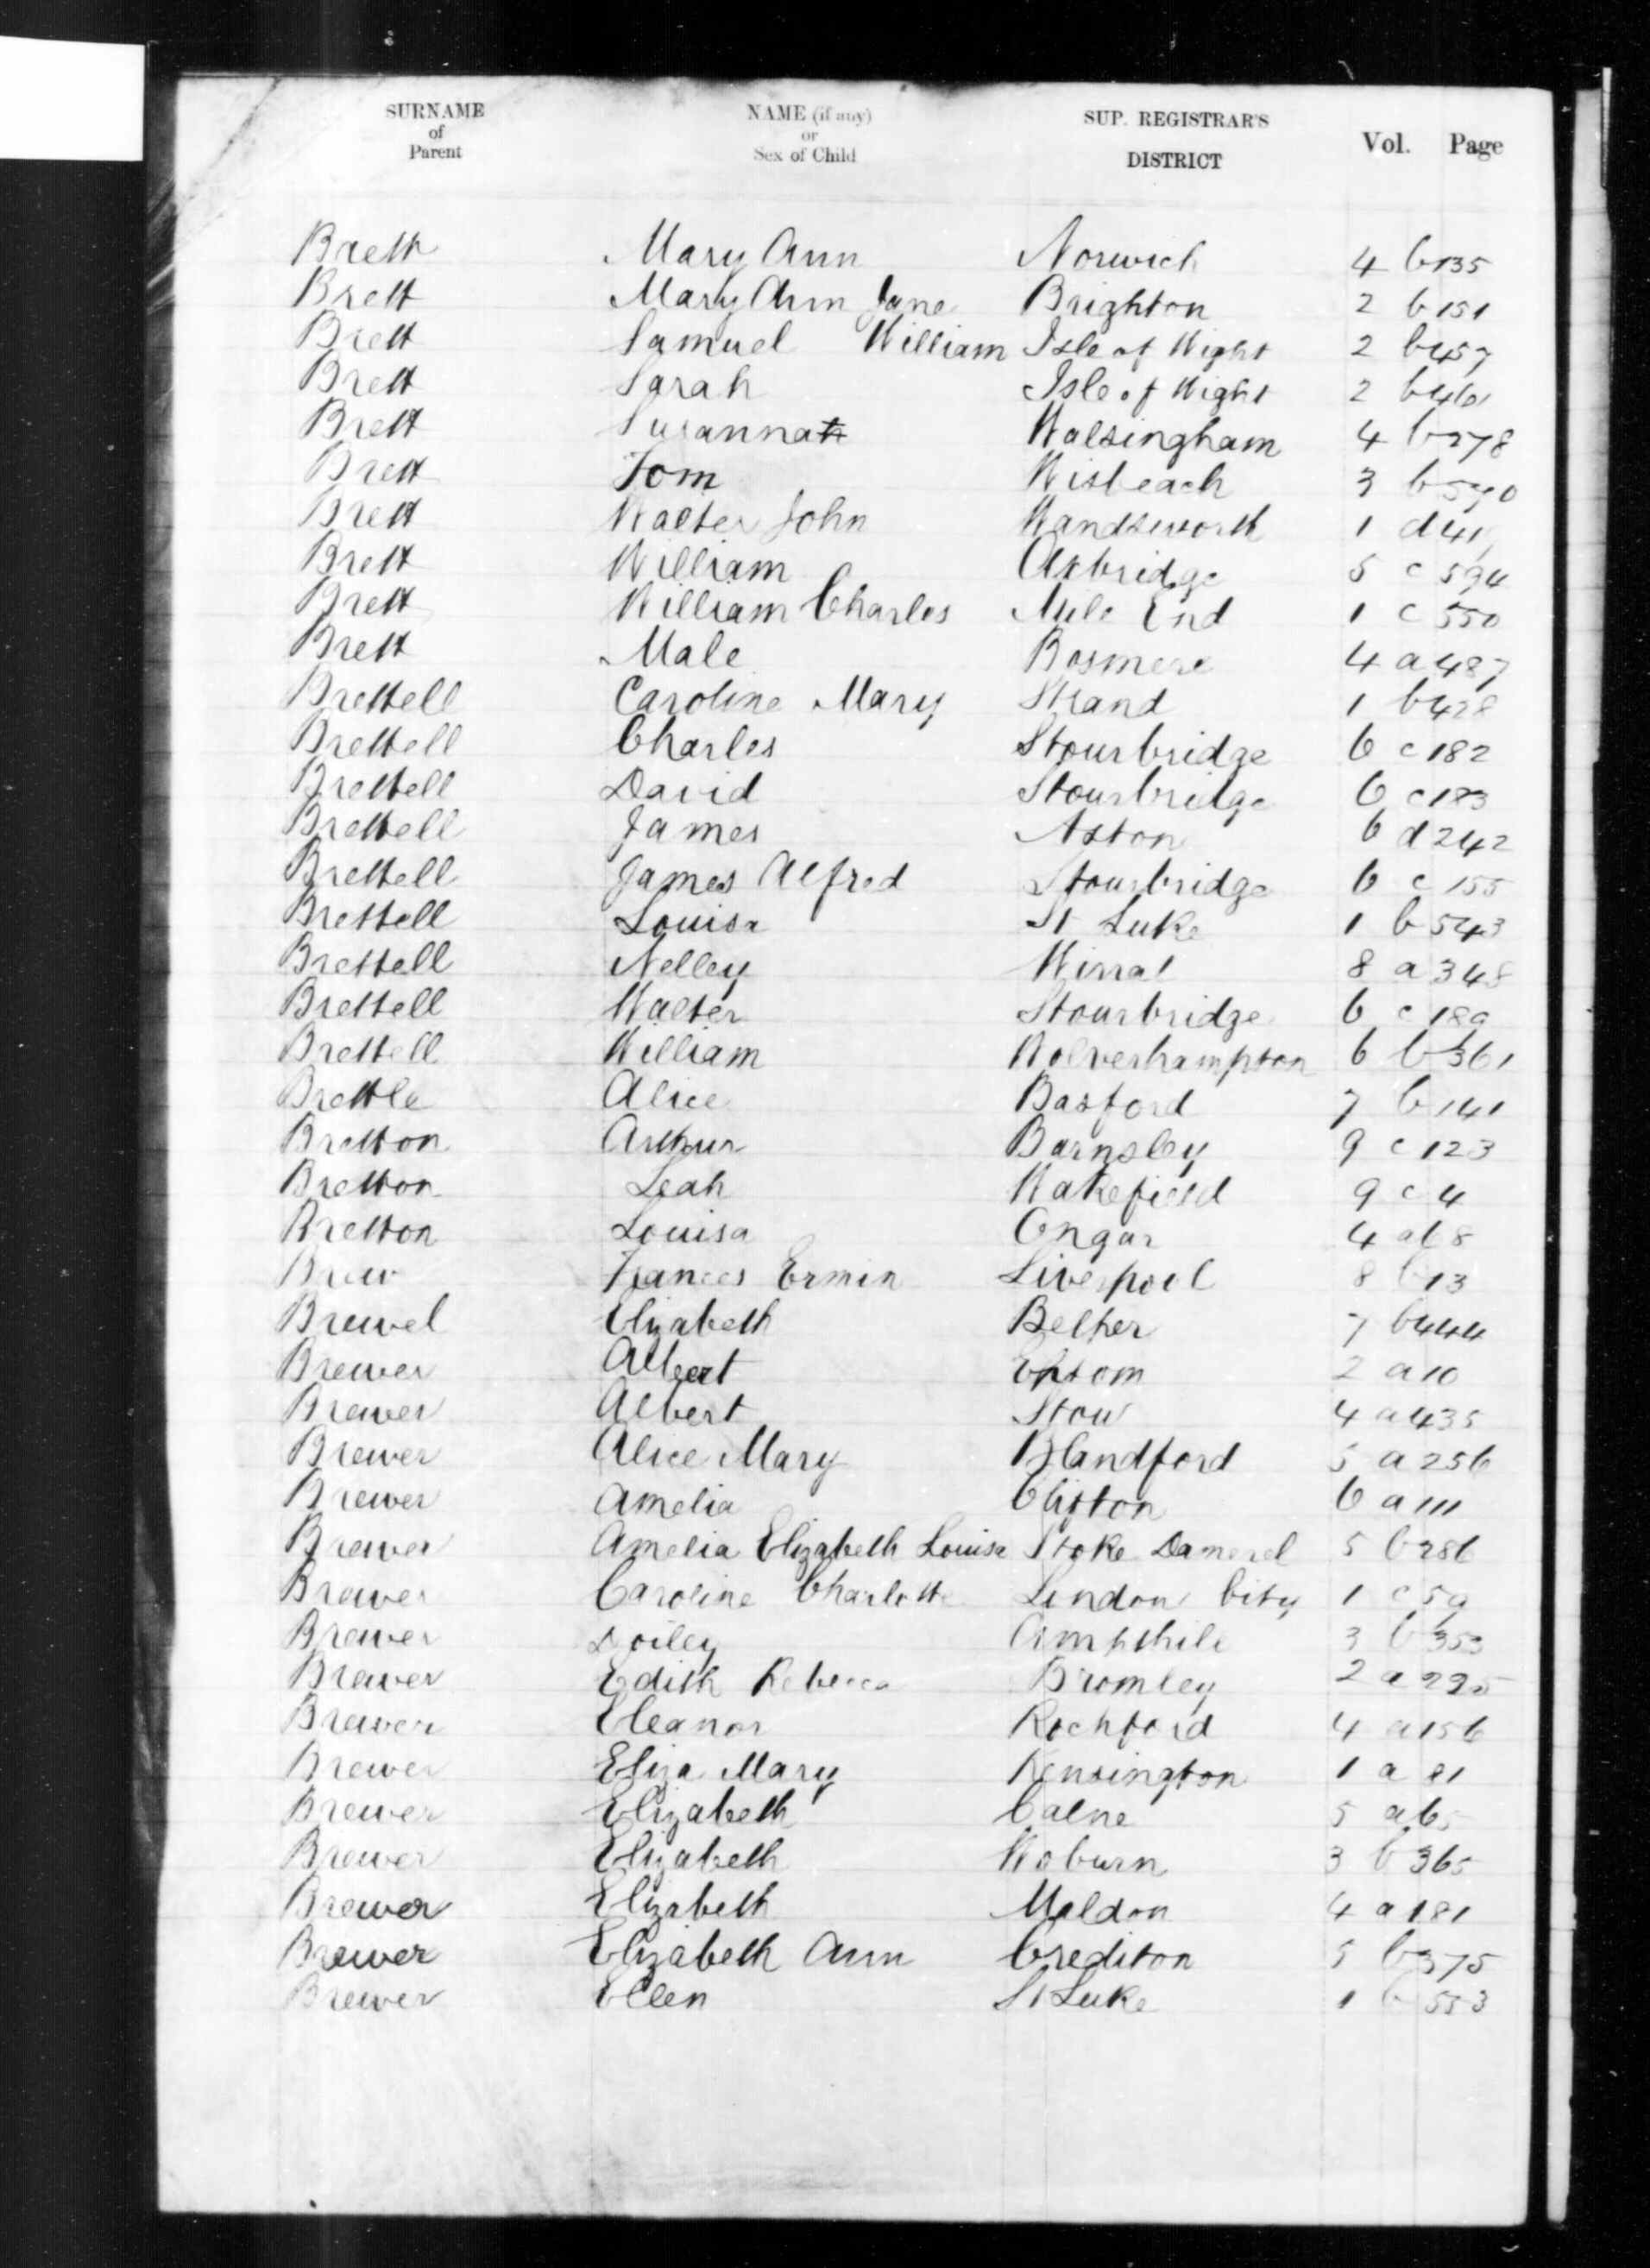 SURNAME of Parent NAME (if any) or Sex of Child SUP. REGISTRAR'S DISTRICT Vol. Page
Brett Mary Ann Norwich 4 b 135
Brett Mary Ann Jane Brighton 2 b 151
Brett Samuel William Isle of Wight 2 b 457
Brett Sarah Isle of Wight 2 b 461
Brett Susannah Walsingham 4 b 278
Brett Tom Wisbeach 3 b
Brett Walter John Wandsworth 1 d
Brett William Axbridge 5 c 594
Brett William Charles Mile End 1 c 550
Brett Male Bosmere 4 a 487
Brettell Caroline Mary Strand 1 b 428
Brettell Charles Stourbridge 6 c 182
Brettell David Stourbridge 6 c 183
Brettell James Aston 6 d 242
Brettell James Alfred Stourbridge 6 c 155
Brettell Louisa St Luke 1 b 543
Brettell Nelley Wirral 8 a 348
Brettell Walter Stourbridge 6 c 189
Brettell William Wolverhampton 6 b 361
Brettle Alice Basford 7 b 141
Bretton Arthur Barnsley 9 c 123
Bretton Leah Wakefield 9 c 4
Bretton Louisa Ongar 4 a 68
Brew Frances Ermin Liverpool 8 b 13
Brewel Elizabeth Belper 7 b 444
Brewer Albert Epsom 2 a 10
Brewer Albert Stow 4 a 435
Brewer Alice Mary Blandford 5 a 256
Brewer Amelia Clifton 6 a 111
Brewer Amelia Elizabeth Louisa Stoke Damerel 5 b 286
Brewer Caroline Charlotte London City 1 c 59
Brewer Doiley Ampthill 3 b 353
Brewer Edith Rebecca Bromley 2 a
Brewer Eleanor Rochford 4 a 156
Brewer Eliza Mary Kensington 1 a 81
Brewer Elizabeth Calne 5 a 65
Brewer Elizabeth Woburn 3 b 365
Brewer Elizabeth Maldon 4 a 181
Brewer Elizabeth Ann Crediton 5 b 375
Brewer Ellen St Luke 1 b 553